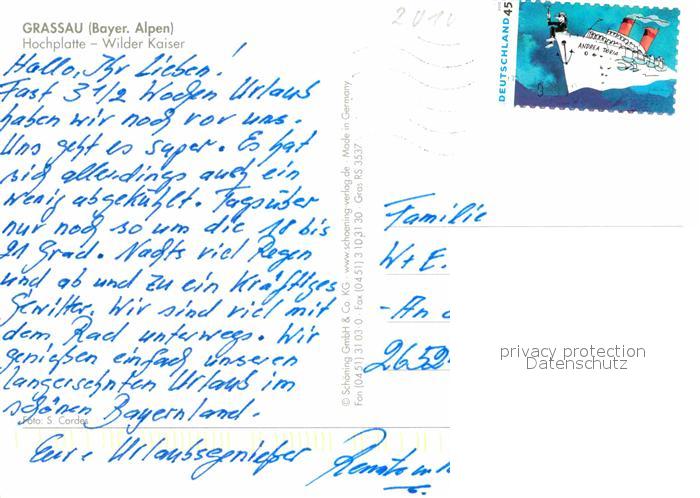 GRASSAU (Bayer. Alpen)
Hochplatte – Wilder Kaiser
2010
Hallo, Ihr Lieben!
Fast 3 1/2 Wochen Urlaub
haben wir noch vor uns.
Uns geht es super. Es hat
sich allerdings auch ein
wenig abgekühlt. Tagsüber
nur noch so um die 18 bis
21 Grad. Nachts viel Regen
und ab und zu ein kräftiges
Gewitter. Wir sind viel mit
dem Rad unterwegs. Wir
genießen einfach unseren
langersehnten Urlaub im
schönen Bayernland.
Foto: S. Cordes
Eure Urlaubsgenießer
© Schöning GmbH & Co. KG · www.schoening-verlag.de · Made in Germany
Fon (0451) 3103 0 · Fax (0451) 3103130 · Gras RS 3537
DEUTSCHLAND 45
ANDREA TORIA
Familie
W + E.
- An
2652
privacy protection
Datenschutz